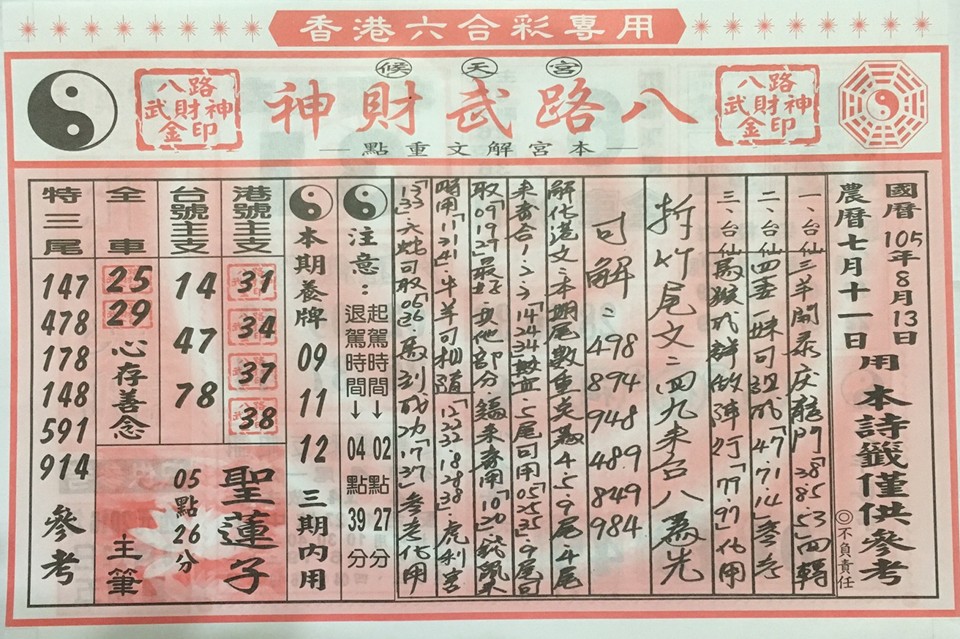 香港六合彩專用
候天宮
八路武財神
本宮解文重點
八路
武財神
金印
八路
武財神
金印
國曆105年8月13日
農曆七月十一日
用
本詩籤僅供參考
◎不負責任
一、台仙三羊開泰慶
「38.85.53」四轉
二、台仙四季一妹可
「47.71.14」參考
三、台仙馬猴成群做陣行「79.97」化用
拆竹尾文=四九來合八為先
可解=498
894
948
489
849
984
解化港文=本期尾數重點
4.5.9尾4尾
來合1.2.3「14.24.34」
5尾可用「05.25.35」9尾可
取「09.19.29」最旺
「10.20」
時用「11.31.41」牛羊可相隨「12.22.32.18.28.38」虎
可取「05.36」馬到成功「17.37」參考化用
注意:
起駕時間→02點27分
退駕時間→04點39分
本期養牌
09
11
12
三期內用
港號主支
31
34
37
38
台號主支
14
47
78
全車
25
29
心存善念
特三尾
147
478
178
148
591
914
參考
聖蓮子
05點26分
主筆